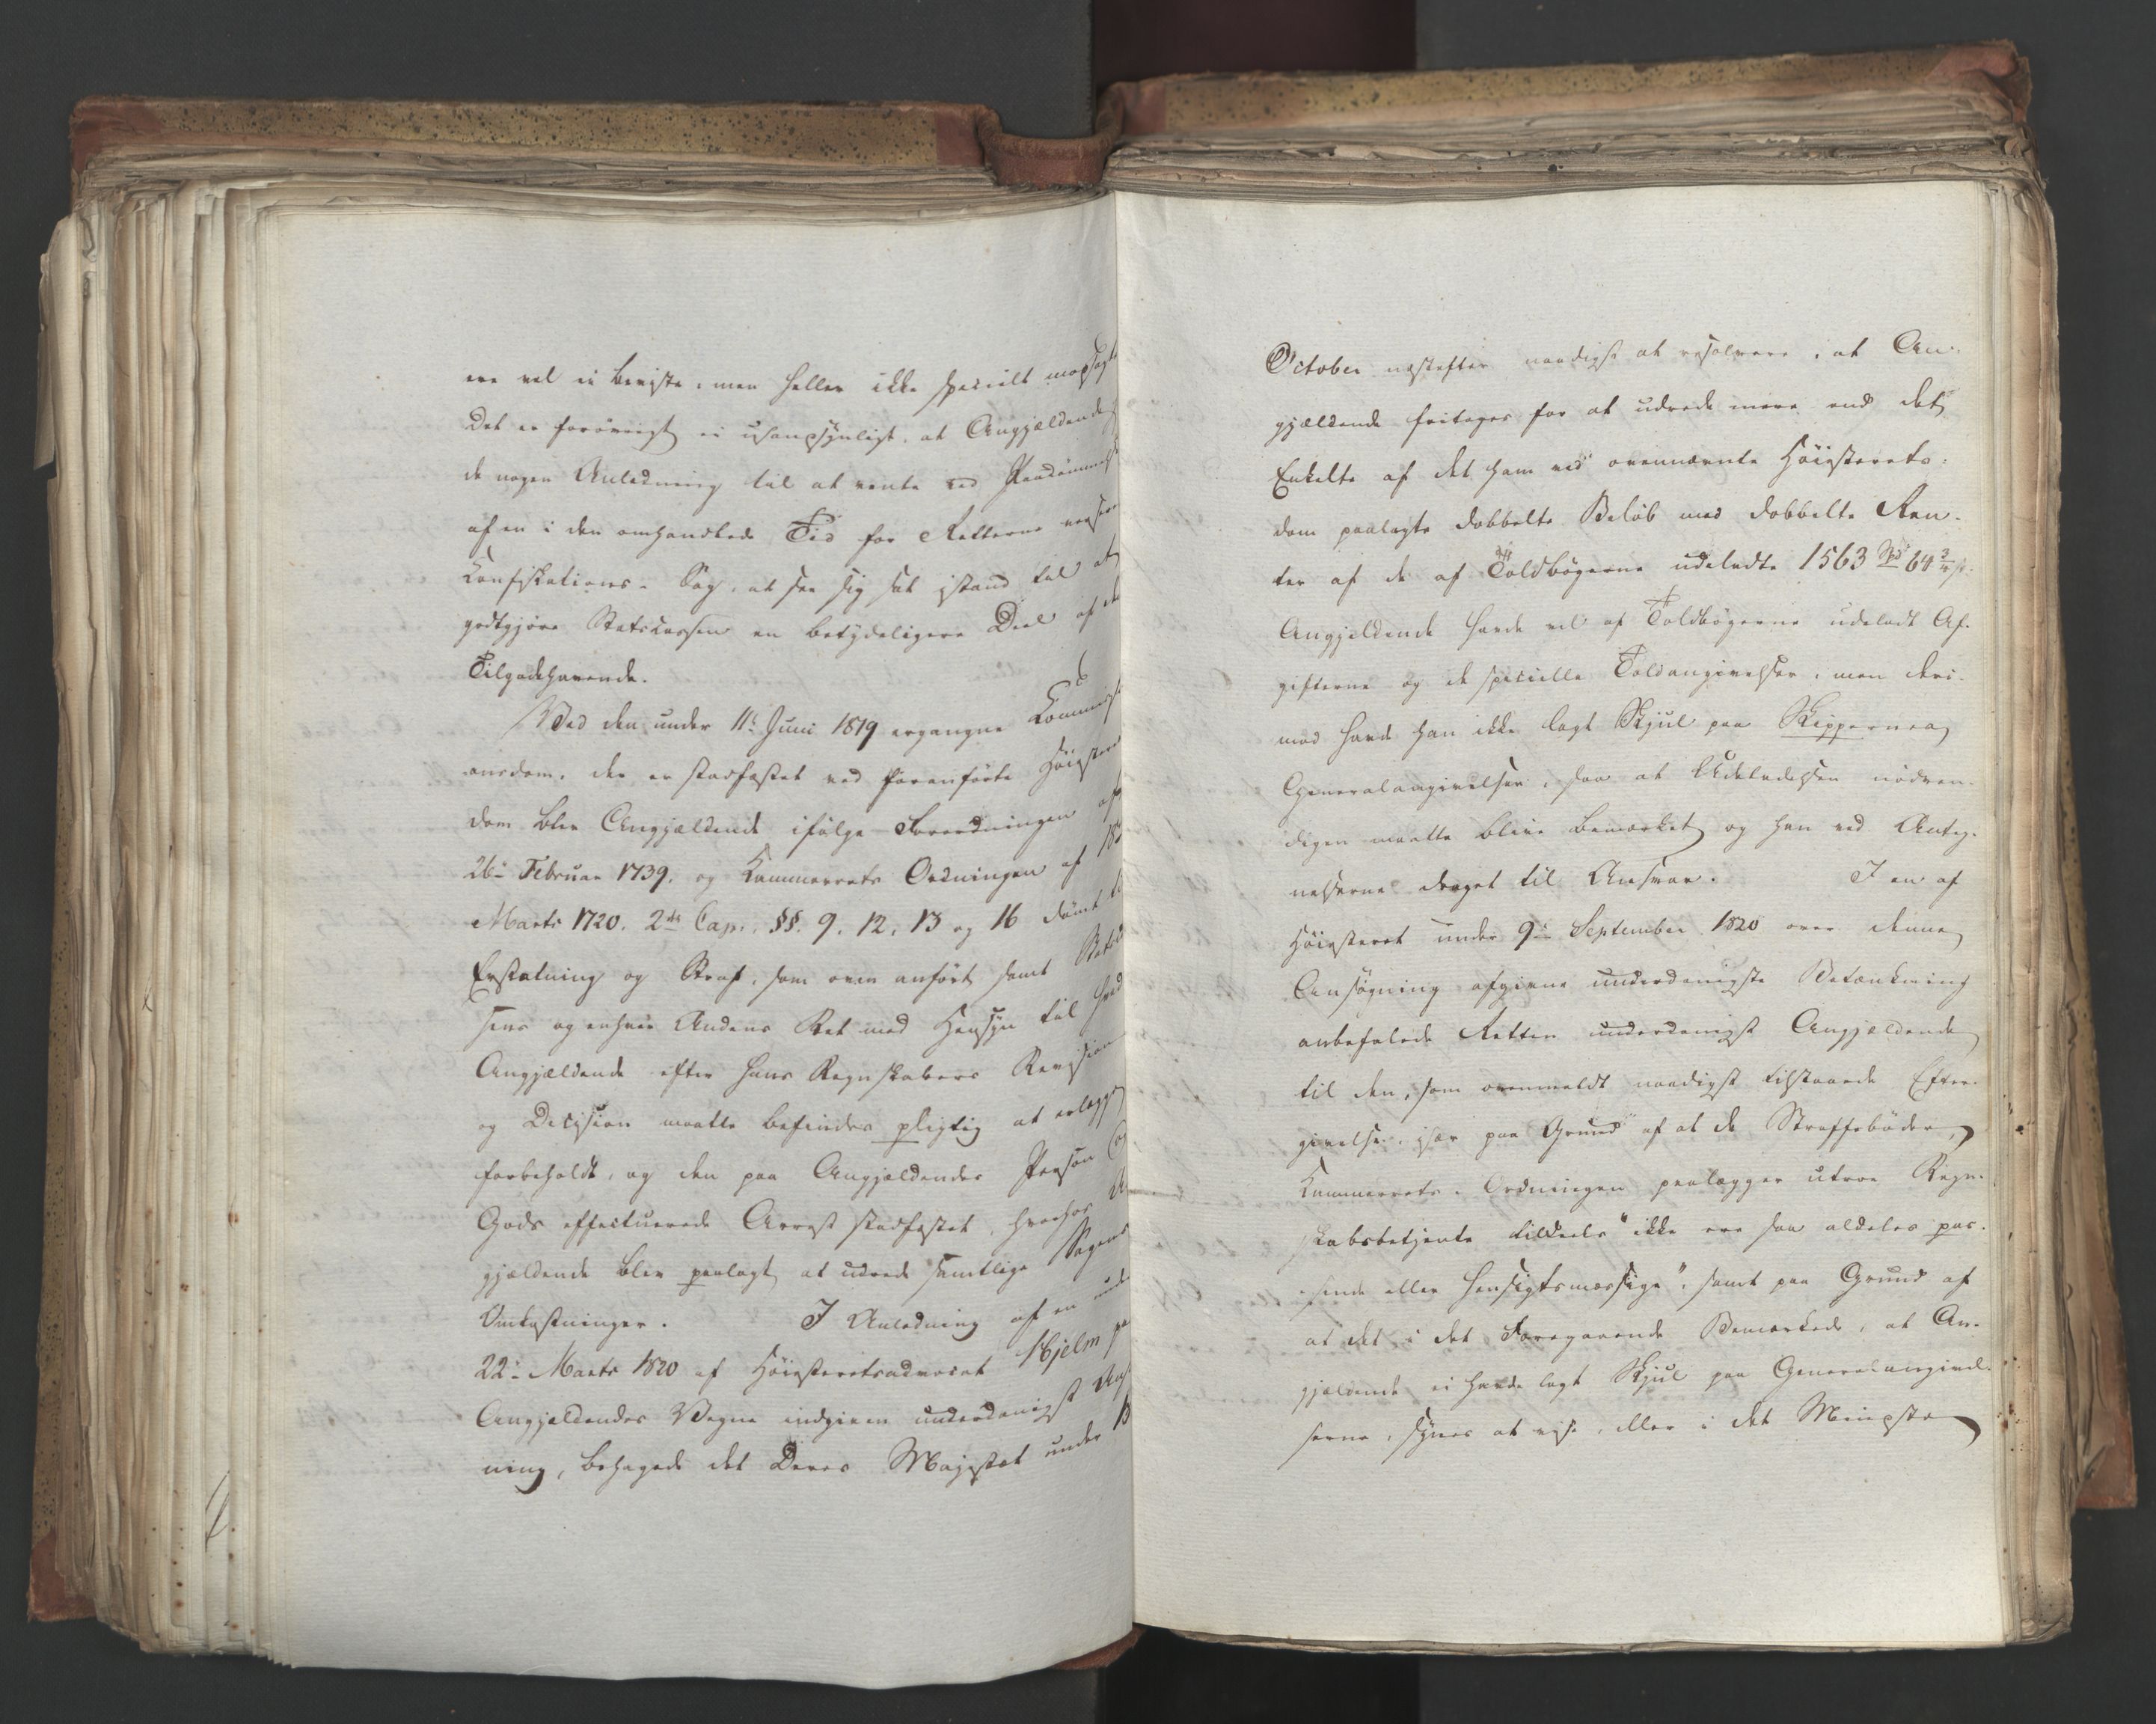 ere vel ei beviste, men heller ikke specielt modsagte
Det er forøvrigt ei usandsynligt, at Angjældende
de nogen Anledning til at vente ved Paadømmelse
af en i den omhandlede Tid for Retterne
Konfiskations-Sag, at see sig sat istand til at
godtgjøre Statskassen en betydeligere Deel af
Tilgodehavende.
Ved den under 11te Juni 1819 ergangne Kommissi
onsdom, der er stadfæstet ved foranførte Høieste
dom blev Angjældende ifølge Forordningen af
26de Februar 1739, og Kammerrets Ordningen af
Marts 1720. 2det Cap. §§. 9. 12. 13 og 16 dømt
Erstatning og Straf, som oven anført samt Statskas
sens og enhver Andens Ret med Hensyn til hvad
Angjældende efter hans Regnskabers Revision
og Decision maatte befindes pligtig at erlægge
forbeholdt, og den paa Angjældendes Person og
Gods effectuerede Arrest stadfæstet, hvorhos
gjældende blev paalagt at udrede samtlige Sagens
Omkostninger. I Anledning af en
22de Marts 1820 af Høiesteretsadvocat Hjelm
Angjældendes Vegne indgiven underdanigst
ning, behagede det Deres Majestæt under
October næstefter naadigst at resolvere, at An-
gjældende fritages for at udrede mere end det
Enkelte af det ham ved ovennævnte Høiesterets-
dom paalagte dobbelte Beløb med dobbelte Ren-
ter af de af Toldbøgerne udeladte 1563 Spd 64 3/4 s.
Angjældende havde vel af Toldbøgerne udeladt Af-
gifterne og de specielle Toldangivelser, men deri-
mod havde han ikke lagt Skjul paa Skippernes
Generalangivelser, saa at Udeladelsen nødven-
digen maatte blive bemærket og han ved Anteg-
nelserne draget til Ansvar. I en af
Høiesteret under 9de September 1820 over denne
Ansøgning afgivne underdanigste Betænkning
anbefalede Retten underdanigst Angjældende
til den, som ovenmeldt naadigst tilstaaede Efter-
givelse, især paa Grund af at de Straffebøder,
Kammerrets-Ordningen paalægger utroe Regn-
skabsbetjente tildeels "ikke ere saa aldeles pas-
sende eller hensigtsmæssige", samt paa Grund af
at det i det Foregaaende Bemærkede, at An-
gjældende ei havde lagt Skjul paa Generalangivel-
serne, synes at vise, eller i det Mindste